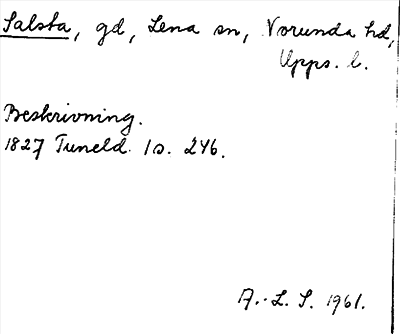 Salsta, gd, Lena sn, Norunda hd,
Upps. l.
Beskrivning.
1827 Tuneld. I s. 246.
A.-L. S. 1961.